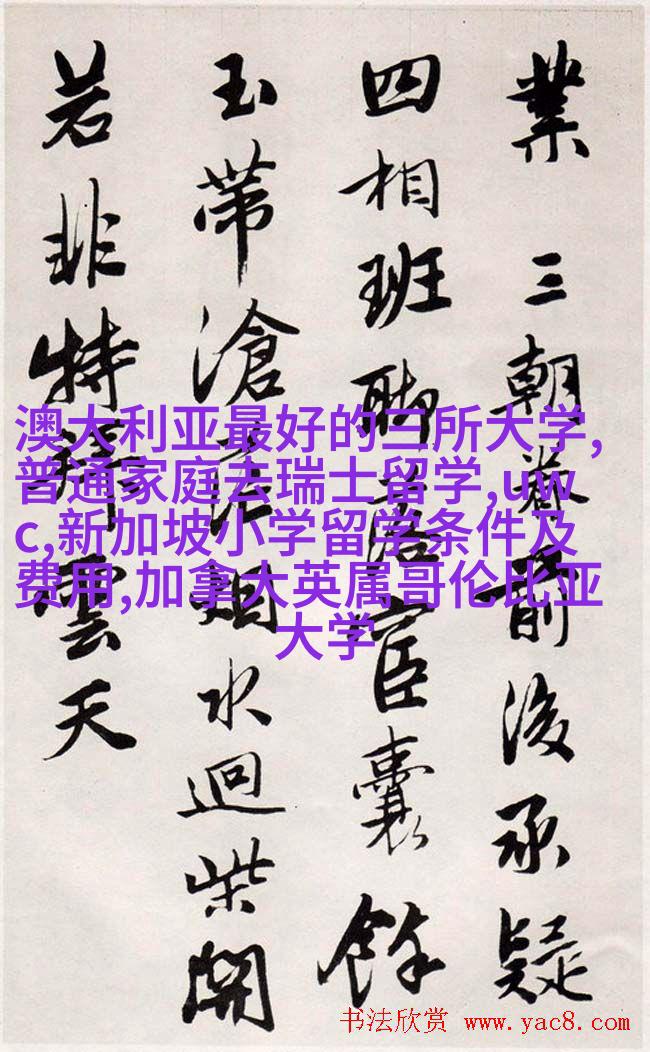 業 三朝前後承疑
四相班聯落宦囊餘
玉帶滄烟水迴柴開
若非特雲天
澳大利亚最好的三所大学,
普通家庭去瑞士留学,uw
c,新加坡小学留学条件及
费用,加拿大英属哥伦比亚
大学
书法欣赏 www.yac8.com